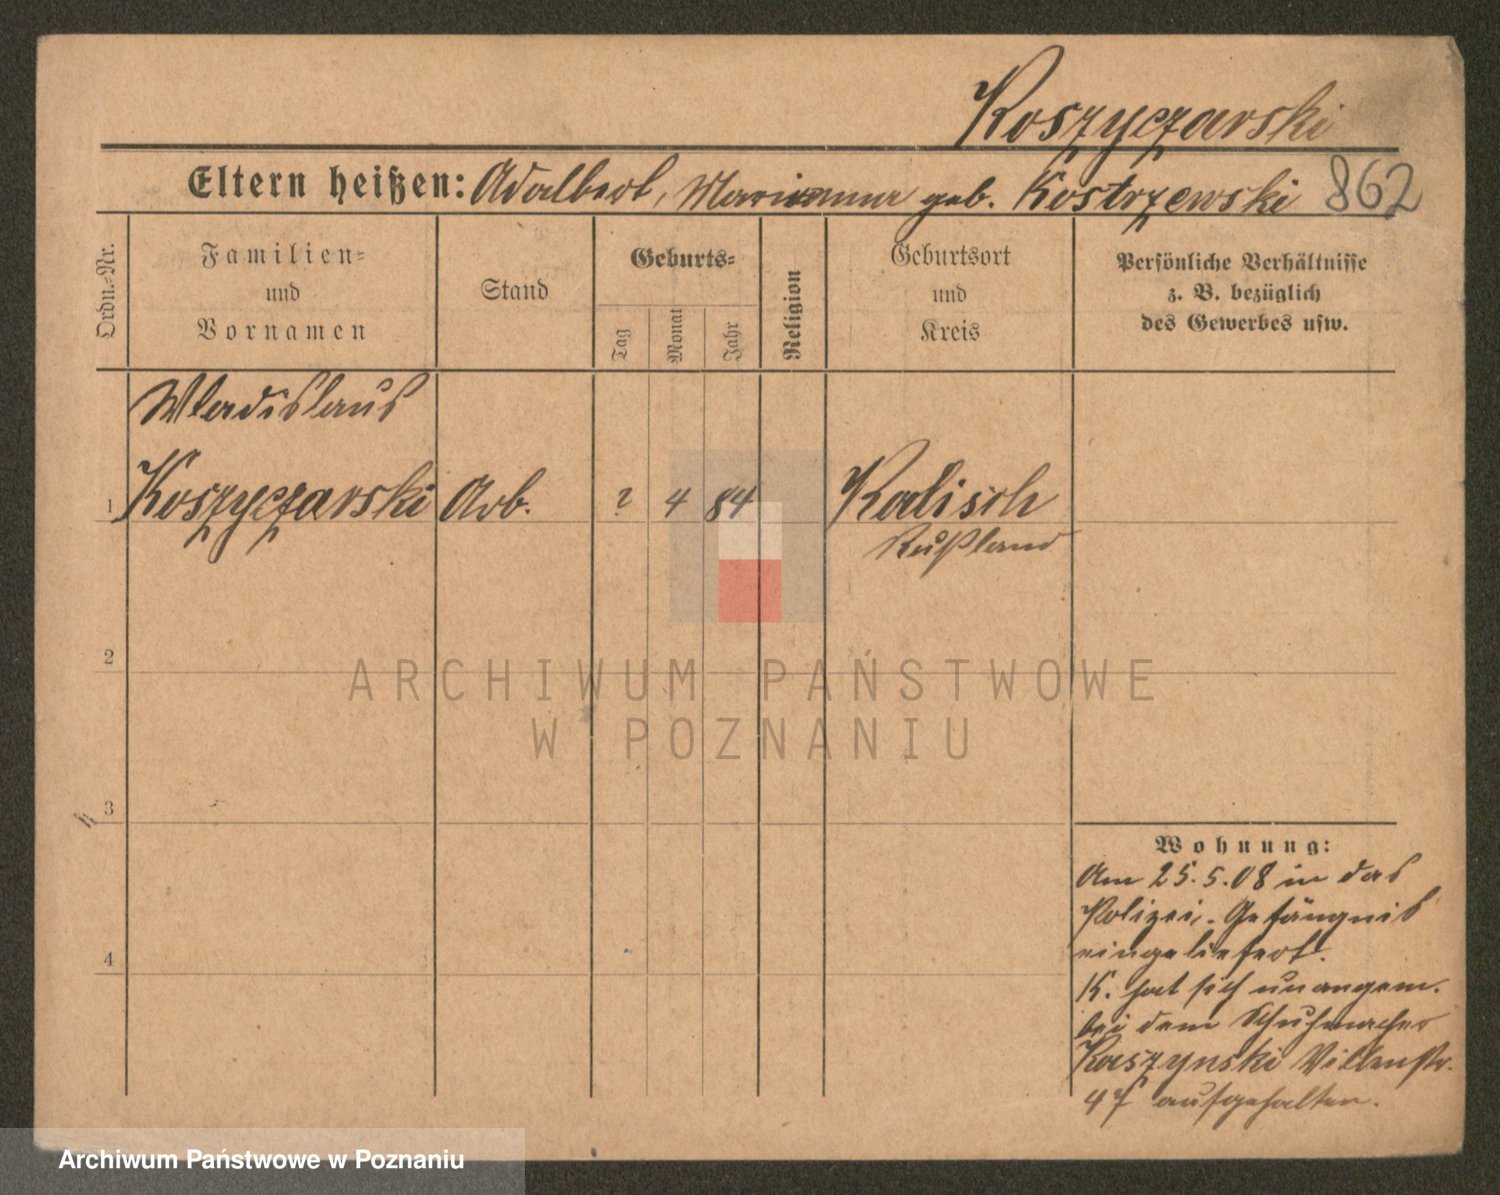 Koszyczarski
Eltern heißen: Adalbert, Marianna geb. Kostrzewski 862
Ordn.-Nr.
Familien-
und
Vornamen
Stand
Geburts-
Tag
Monat
Jahr
Religion
Geburtsort
und
Kreis
Persönliche Verhältnisse
z. B. bezüglich
des Gewerbes usw.
Wladislaus
1 Koszyczarski Arb. ? 4 84 Kalisch
Rußland
2
ARCHIWUM PAŃSTWOWE
W POZNANIU
3
Wohnung:
Am 25.5.08 in das
Polizei-Gefängnis
eingeliefert.
4
K. hat sich unangem.
bei dem Schuhmacher
Kaszynski
aufgehalten.
Archiwum Państwowe w Poznaniu